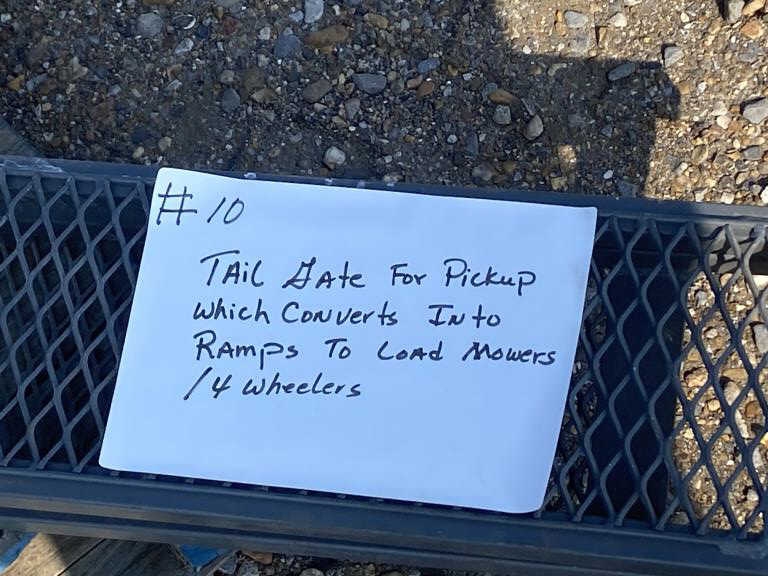 # 10
Tail Gate For Pickup
Which Converts Into
Ramps To Load Mowers
/4 Wheelers